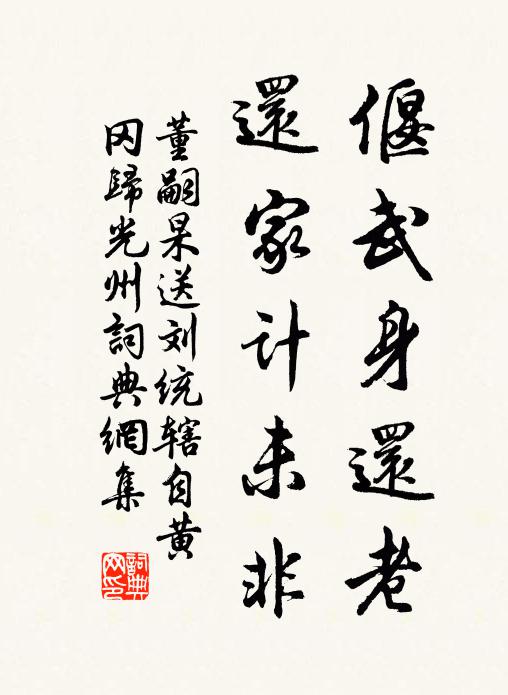 偃武身還老
還家計未非
董嗣杲送刘统辖自黄
冈歸光州詞典網集
詞典网印